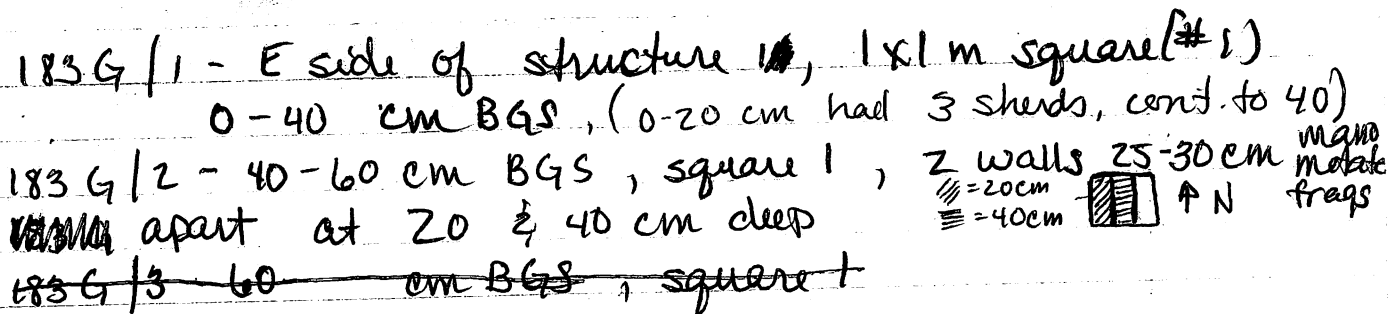 183G/1 - E side of structure 1, 1x1 m square (#1)
0-40 cm BGS, (0-20 cm had 3 sherds, cont. to 40)
183G/2 - 40-60 cm BGS, square 1, 2 walls 25-30 cm mano metate frags
apart at 20 & 40 cm deep
=20cm
=40cm
↑ N
183G/3 60 cm BGS, square 1